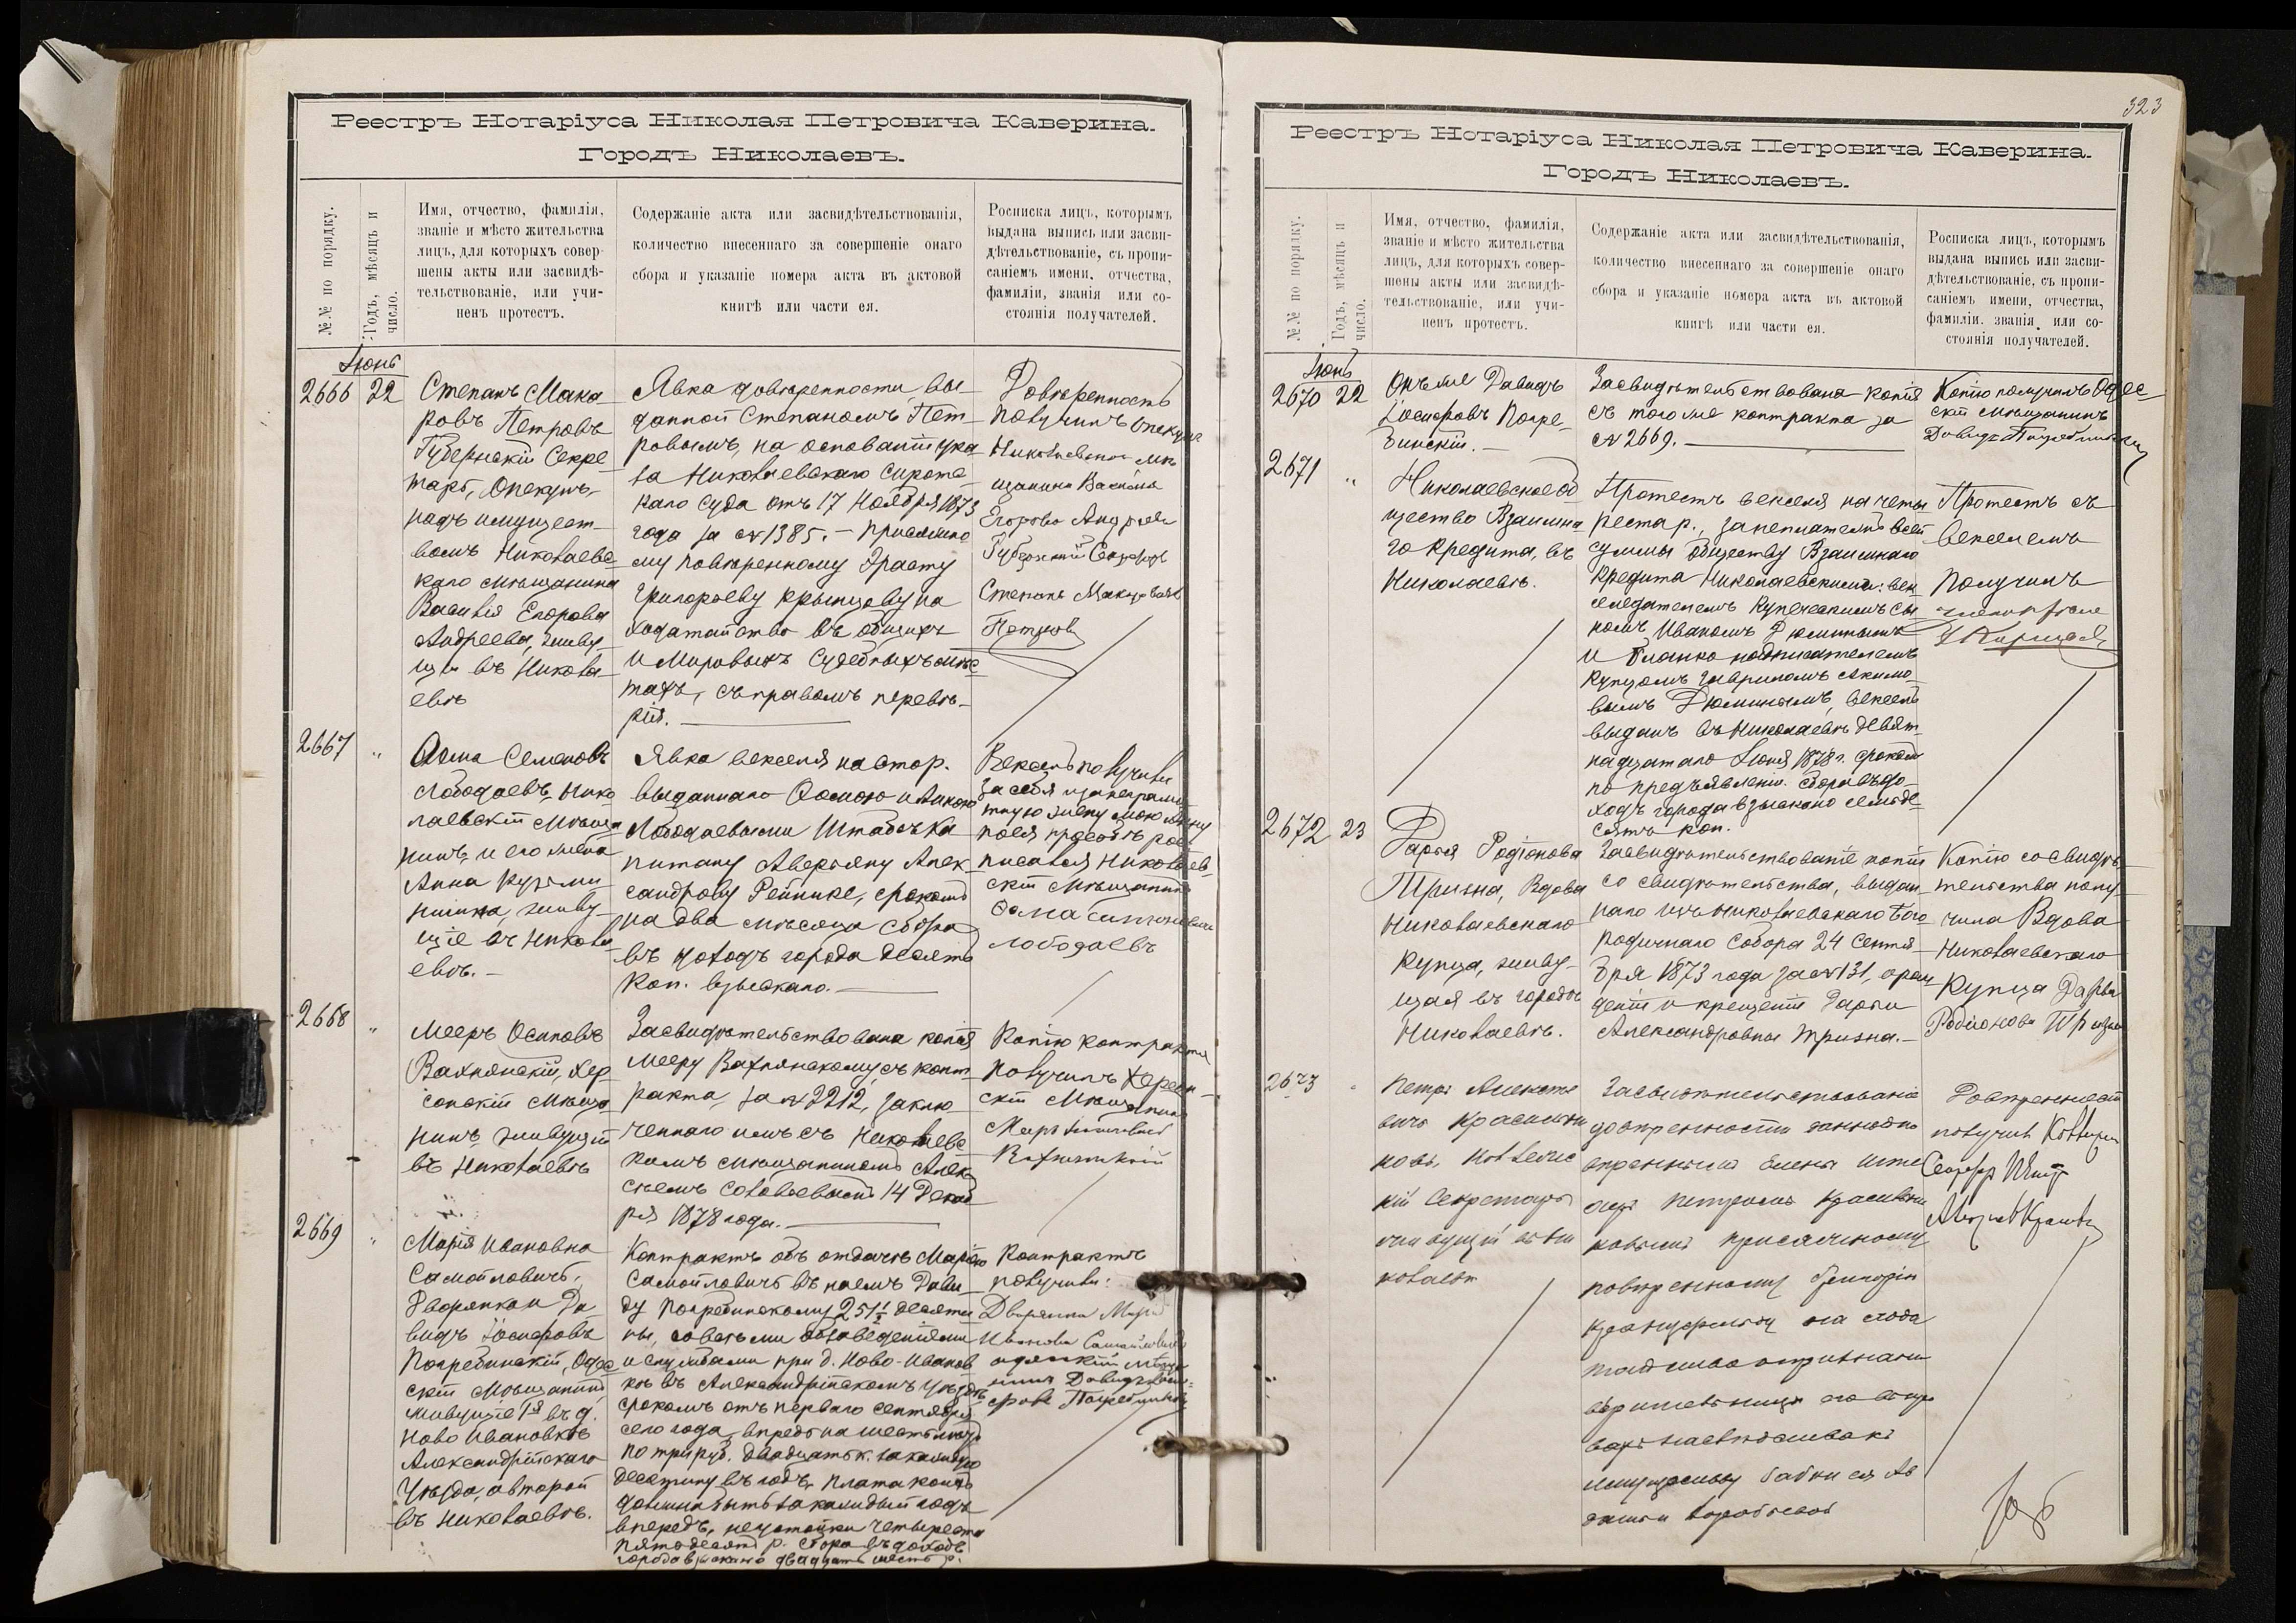 Реестръ Нотаріуса Николая Петровича Каверина.
Городъ Николаевъ.
№№ по порядку.
Годъ, мѣсяцъ и
число.
Имя, отчество, фамилія,
званіе и мѣсто жительства
лицъ, для которыхъ совер-
шены акты или засвидѣ-
тельствованіе, или учи-
ненъ протестъ.
Содержаніе акта или засвидѣтельствованія,
количество внесеннаго за совершеніе онаго
сбора и указаніе номера акта въ актовой
книгѣ или части ея.
Росписка лицъ, которымъ
выдана выпись или засви-
дѣтельствованіе, съ пропи-
саніемъ имени, отчества,
фамиліи, званія или со-
стоянія получателей.
Іюнь
2666 22
Степанъ Мака
ровъ Петровъ
Губернскій Секре
тарь, Опекунъ
надъ имущест
вомъ Николаевс
каго мѣщанина
Василія Егорова
Андреева, живу
щій въ Никола
евѣ
Явка довѣренности, вы
данной Степаномъ Пет
ровымъ, на основаніи ука
за Николаевскаго Сиротс
каго Суда отъ 17 Ноября 1873
года за № 1385. – Присяжно
му повѣренному Эрасту
Григорьеву Крымцову на
ходатайство въ общихъ
и Мировыхъ Судебныхъ мѣс
тахъ, съ правомъ перевѣ-
рія.
Довѣренность
получилъ Опекунъ
Николаевскаго мѣ
щанина Василія
Егорова Андреева
Губернскій Секретарь
Степанъ Макаровъ
Петровъ
2667 "
Ѳома Семеновъ
Лободаевъ, Нико
лаевскій мѣща
нинъ, и его жена
Анна Кузьми
нишна, живу
щіе въ Никола
евѣ. –
Явка векселя на стор.
выданнаго Ѳомою и Анною
Лободаевыми Штабсъ Ка
питану Аверьяну Алек
сандрову Рейнике, срокомъ
на два мѣсяца сбора
въ доходъ города десять
коп. взыскано.
Вексель получилъ
за себя и за неграмо
тную жену мою Анну
по ея просьбѣ рос
писался Николаев
скій мѣщанинъ
Ѳома Симоновъ
Лободаевъ
2668 "
Мееръ Осиповъ
Вахнянскій, Хер
сонскій мѣща
нинъ живущій
въ Николаевѣ
Засвидѣтельствована копія
Мееру Вахнянскому съ конт
ракта, за № 2212, заклю
ченнаго имъ съ Николаевс
кимъ мѣщаниномъ Алек
сѣемъ Соловьевымъ 14 Декаб
ря 1878 года.
Копію контракта
получилъ Херсон
скій Мѣщанинъ
2669 "
Марія Ивановна
Самойловичъ,
Дворянка и Да
видъ Іосифовъ
Погребинскій, Одес
скій Мѣщанинъ
живущіе 1я въ д.
Ново Ивановкѣ
Александрійскаго
Уѣзда, а второй
въ Николаевѣ.
Контрактъ объ отдачѣ Маріею
Самойловичъ въ наемъ Дави
ду Погребинскому 251½ десяти
ны, со всѣми обзаведеніями
и службами при д. Ново-Иванов
кѣ въ Александрійскомъ Уѣздѣ
срокомъ отъ перваго сентября
сего года впредь на шесть лѣтъ
по три руб. двадцать к. за каждую
десятину въ годъ, плата коихъ
должна быть за каждый годъ
впередъ, неустойки четыреста
пятьдесятъ р. сбора въ доходъ
города взыскано двадцать шесть р.
Контрактъ
получили:
Дворянка Марія
Иванова Самойловичъ
одесскій мѣща
нинъ Давидъ Іоси-
фовъ Погребинскій
323
Реестръ Нотаріуса Николая Петровича Каверина.
Городъ Николаевъ.
№№ по порядку.
Годъ, мѣсяцъ и
число.
Имя, отчество, фамилія,
званіе и мѣсто жительства
лицъ, для которыхъ совер-
шены акты или засвидѣ-
тельствованіе, или учи-
ненъ протестъ.
Содержаніе акта или засвидѣтельствованія,
количество внесеннаго за совершеніе онаго
сбора и указаніе номера акта въ актовой
книгѣ или части ея.
Росписка лицъ, которымъ
выдана выпись или засви-
дѣтельствованіе, съ пропи-
саніемъ имени, отчества,
фамиліи, званія, или со-
стоянія получателей.
Іюнь
2670 22
Онъ же Давидъ
Іосифовъ Погре-
бинскій. –
Засвидѣтельствована копія
съ того же контракта за
№ 2669.
Копію получилъ Одес
скій мѣщанинъ
Давидъ Погребинскій
2671 "
Николаевское об
щество Взаимна
го Кредита, въ
Николаевѣ.
Протестъ векселя на четы
реста р., за неплатежъ всей
суммы обществу Взаимнаго
Кредита Николаевскимъ: век
селедателемъ Купеческимъ Сы
номъ Иваномъ Дюминымъ
и бланко надписателемъ
купцомъ Гавриломъ Акимо
вымъ Дюминымъ, вексель
выданъ въ Николаевѣ девят
надцатаго Іюня 1878 г. срокомъ
по предъявленіи. сбора въ до
ходъ города взыскано семьде
сятъ коп.
Протестъ съ
векселемъ
Получилъ
2672 23
Дарья Родіонова
Тризна, Вдова
Николаевскаго
Купца, живу-
щая въ городѣ
Николаевѣ.
Засвидѣтельствованіе копіи
со свидѣтельства, выдан
наго изъ Николаевскаго Бого
родичнаго Собора 24 Сентя-
бря 1873 года за № 131, о рож
деніи и крещеніи Дарьи
Александровны Тризна. –
Копію со свидѣ-
тельства полу-
чила Вдова
Николаевскаго
Купца Дарья
Родіонова Тризна
2673 "
Петръ Алексѣе
вичъ Красильни
ковъ, Коллежс
кій Секретарь
живущій въ Ни
колаевѣ
Засвидѣтельствованіе
довѣренности данной по
Петромъ Красильни
ковымъ присяжному
повѣренному Григорію
имуществу бабки ея Ав
дотьи Воробьевой
Довѣренность
получилъ Коллеж